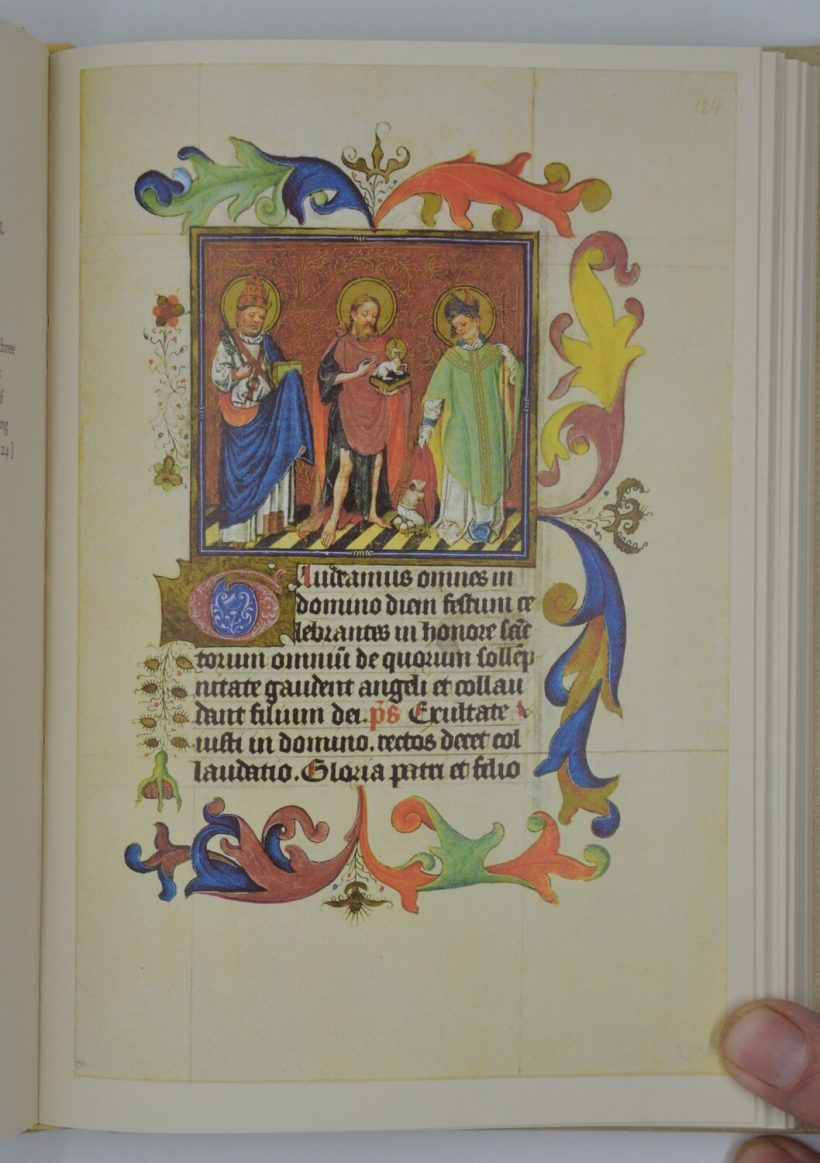 124
Gaudeamus omnes in
domino diem festum ce
lebrantes in honore sc̄c
torum omniū de quorum sollēp
nitate gaudent angeli et collau
dant filium dei. p̄s Exultate
iusti in domino. rectos decet col
laudatio. Gloria patri et filio
three
f
ng
24]